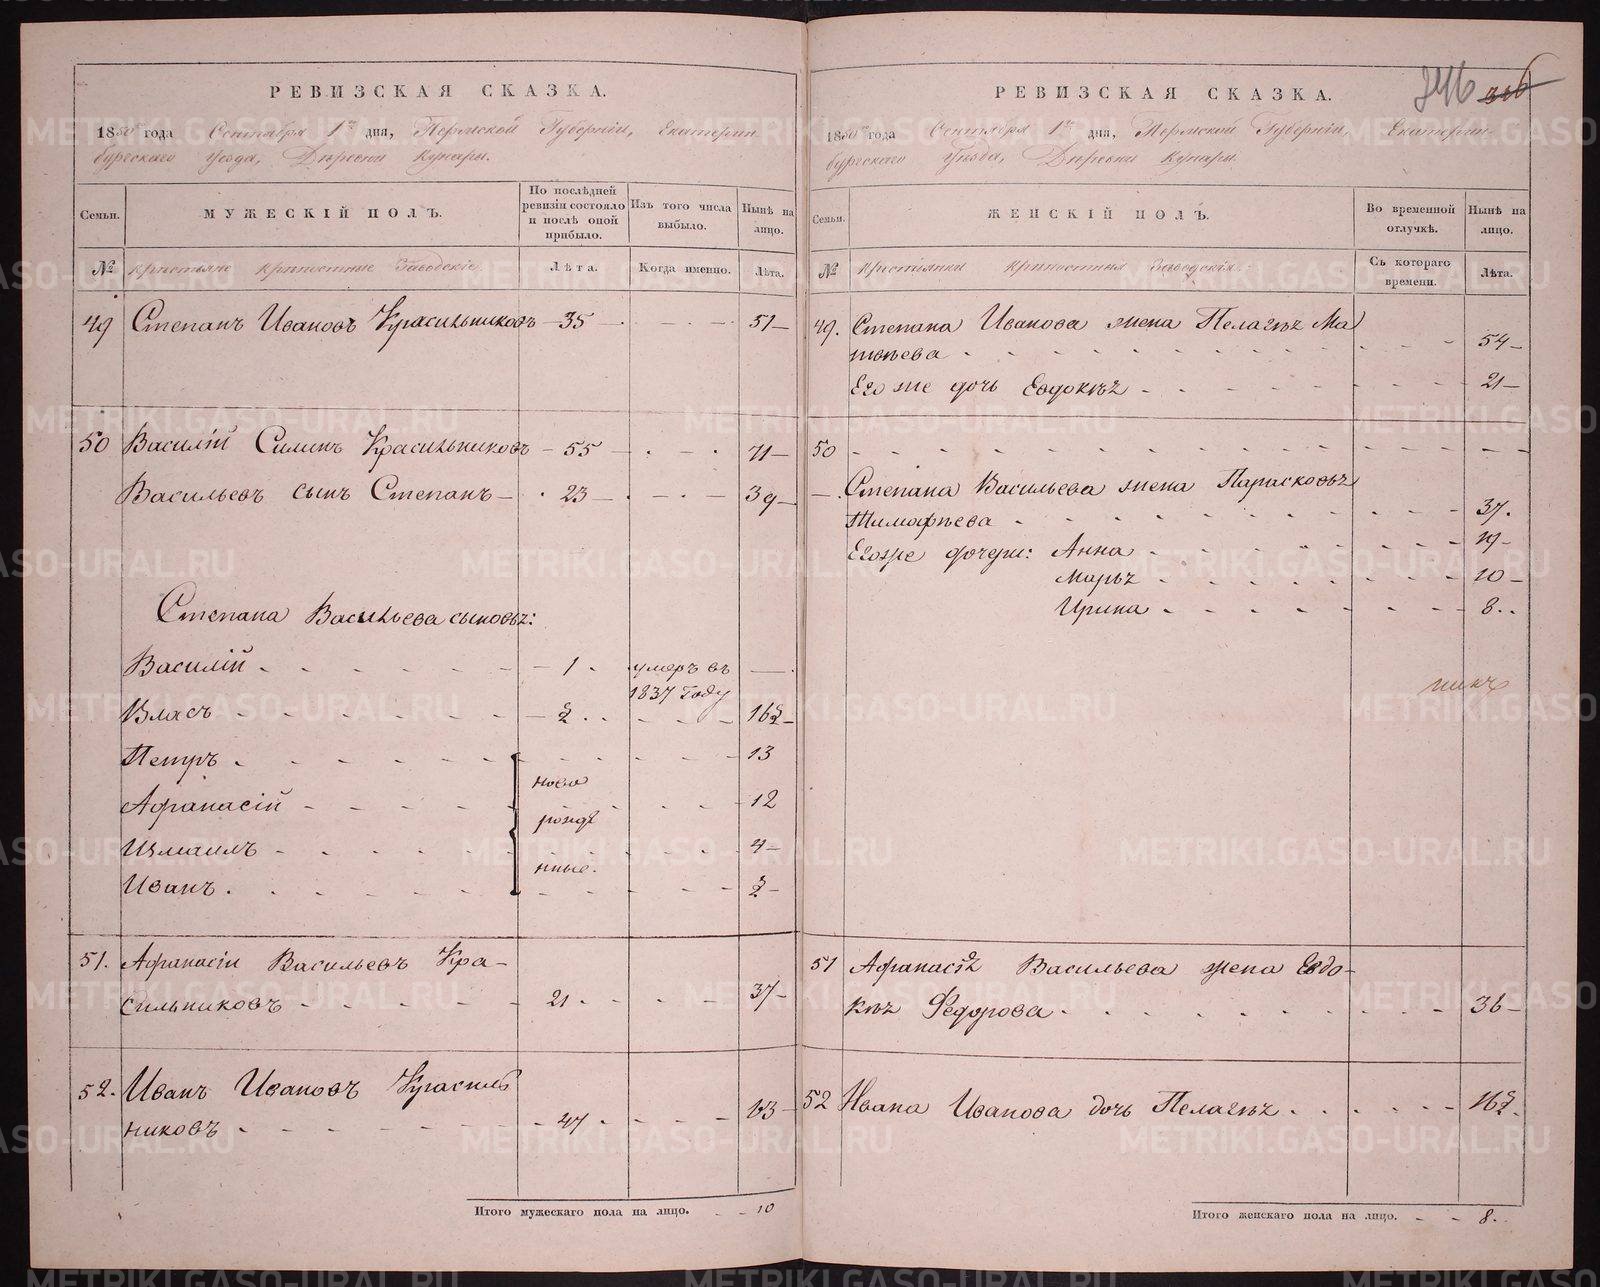 РЕВИЗСКАЯ СКАЗКА.
1850го года Сентября 1го дня, Пермской Губернiи, Екатерин
бургскаго Уезда, Деревни Кунары.
Семьи.
МУЖЕСКIЙ ПОЛЪ.
По послѣдней ревизiи состояло и послѣ оной прибыло.
Изъ того числа выбыло.
Нынѣ на лицо.
№ Крестьяне крѣпостные Заводскiе
Лѣта.
Когда именно.
Лѣта.
49 Степанъ Ивановъ Красильниковъ - 35 - 51 -
50 Василiй Силинъ Красильниковъ - 55 - 71 -
Васильевъ сынъ Степанъ - 23 - 39 -
Степана Васильева сыновья:
Василiй - 1 умеръ въ
1837 году
Власъ - ½ 16½ -
Петръ 13
ново
Афанасiй 12
рожд
Измаилъ 4 -
нные.
Иванъ ½ -
51. Афанасiй Васильевъ Кра-
сильниковъ - 21 - 37 -
52. Иванъ Ивановъ Красиль
никовъ - 47 - 63 -
Итого мужескаго пола на лицо. 10
246 326
РЕВИЗСКАЯ СКАЗКА.
1850го года Сентября 1го дня, Пермской Губернiи, Екатерин-
бургскаго Уѣзда, Деревни Кунары.
Семьи.
ЖЕНСКIЙ ПОЛЪ.
Во временной отлучкѣ.
Нынѣ на лицо.
№ Крестьянки крѣпостныя Заводскiя
Съ котораго времени.
Лѣта.
49. Степана Иванова жена Пелагѣя Ма
твѣева 54 -
Его же дочь Евдокѣя 21 -
50
Степана Васильева жена Парасковья
Тимофѣева 37.
Его же дочери: Анна 19 -
Марья 10 -
Ирина 8.
51 Афанасiя Васильева жена Евдо-
кѣя Федорова 36 -
52 Ивана Иванова дочь Пелагѣя 16½.
Итого женскаго пола на лицо. 8.
METRIKI.GASO-URAL.RU